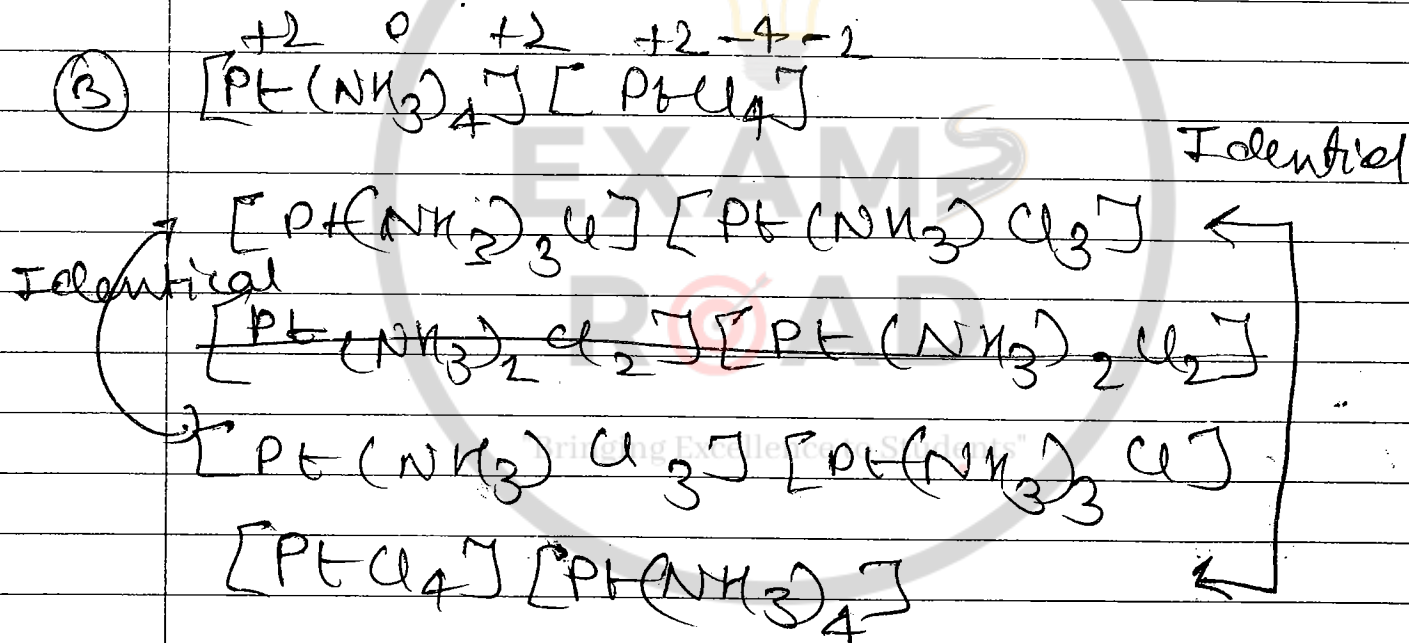 +2 0 +2 +2 -4 -2
(B) [Pt(NH3)4] [PtCl4]
Identicl
[Pt(NH3)3Cl] [Pt(NH3)Cl3]
Identical
[Pt(NH3)2Cl2] [Pt(NH3)2Cl2]
[Pt(NH3)Cl3] [Pt(NH3)3Cl]
[PtCl4] [Pt(NH3)4]
EXAMS
ROAD
"Bringing Excellence to Students"